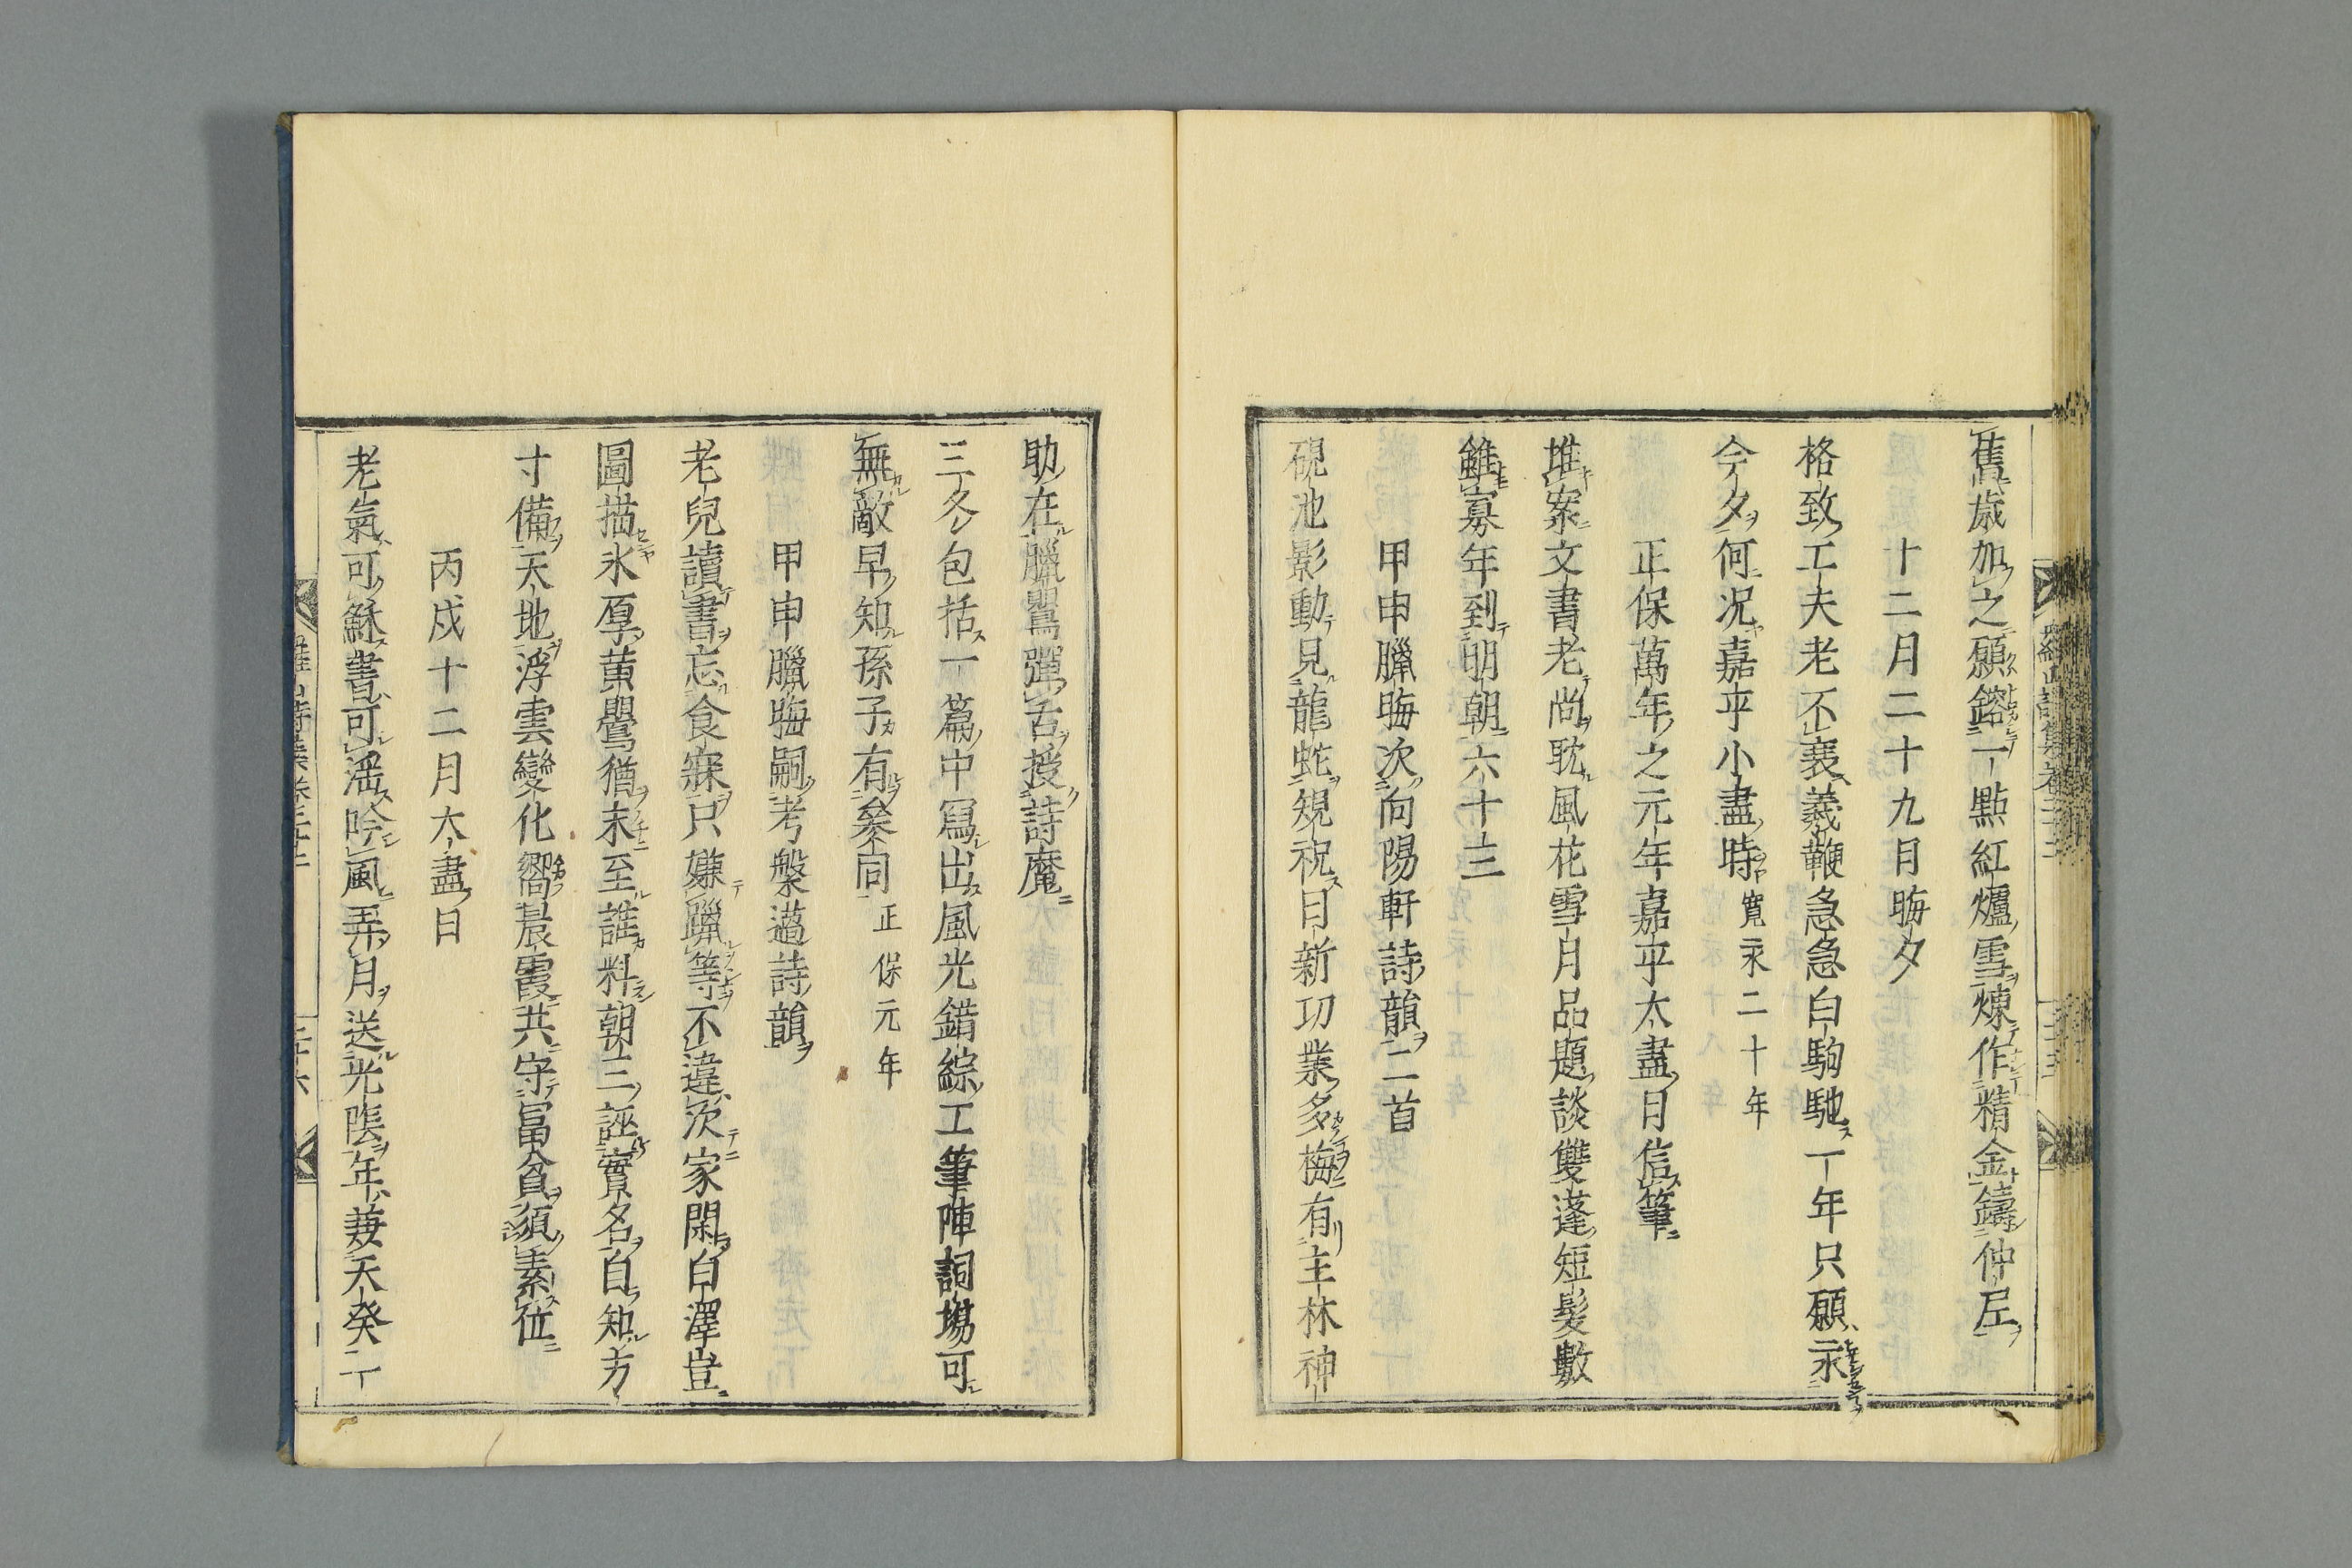 舊歳加之願鎔一點紅爐雪煉作精金鑄仲尼
十二月二十九日晦夕
格致工夫老不衰羲鞭急急白駒馳一年只願永
今夕何況嘉平小盡時寛永二十年
正保萬年之元年嘉平大盡日信筆
堆案文書老尚耽風花雪月品題談雙蓬短髮數
雖寡年到明朝六十三
甲申臘晦次向陽軒詩韻二首
硯池影動見龍蛇規祝日新功業多梅有主林神
助在臘鸎彈舌授詩魔
三冬包括一篇中寫出風光錯綜工筆陣詞場可
無敵早知孫子有參同正保元年
甲申臘晦嗣考槃薖詩韻
老兒讀書忘食寐只嫌躐等不違次家閑白澤豈
圖描氷厚黄鸎猶未至誰料朝三誣實名自知方
寸備天地浮雲變化嚮晨霞共守冨貧須素位
丙戌十二月大盡日
老氣可穌書可滛吟風弄月送光陰年兼天癸二